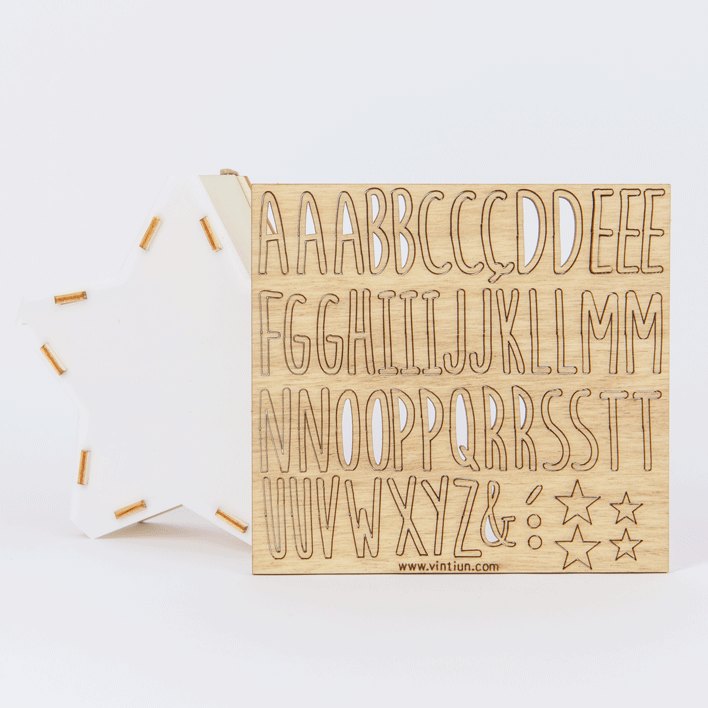 AAABBCCÇDDEEE
FGGHIIIJJKLLMM
NNOOPPQRRSSTT
UUVWXYZ&´:
www.vintiun.com